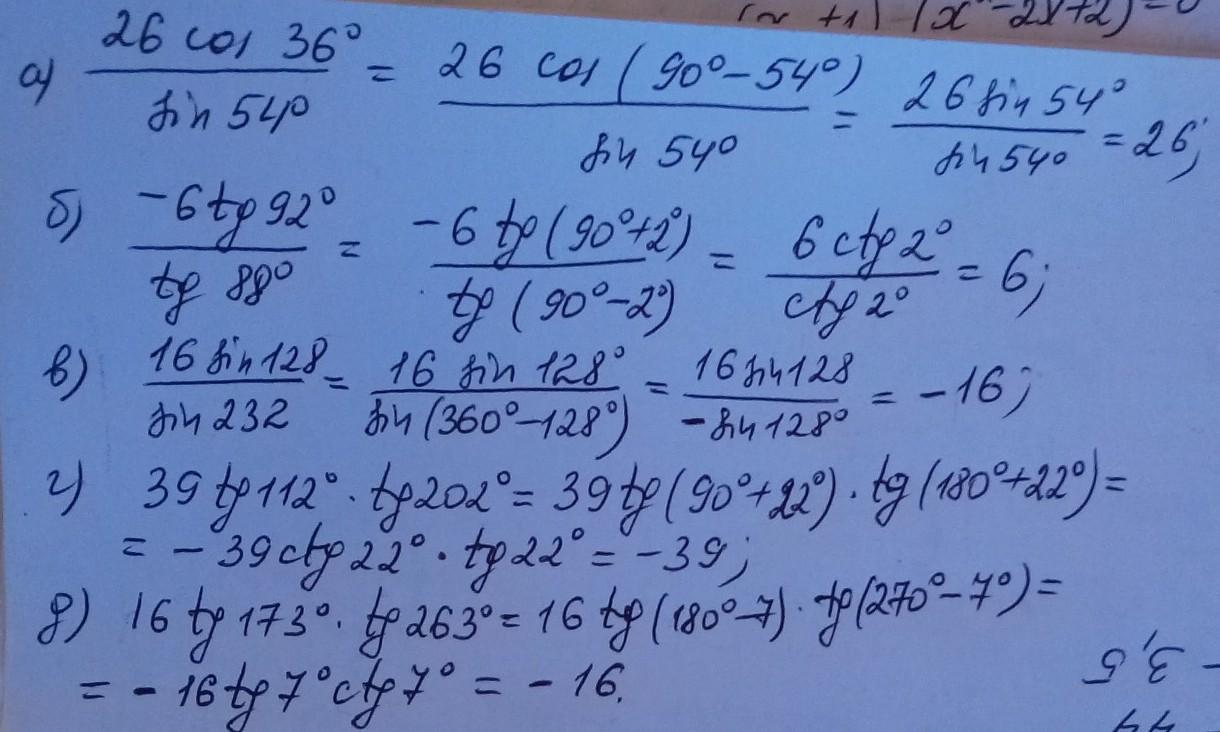 (x²-2x+2)=0
а) 26 cos 36° / sin 54° = 26 cos (90°-54°) / sin 54° = 26 sin 54° / sin 54° = 26;
б) -6 tg 92° / tg 88° = -6 tg (90°+2°) / tg (90°-2°) = 6 ctg 2° / ctg 2° = 6;
в) 16 sin 128 / sin 232 = 16 sin 128° / sin (360°-128°) = 16 sin 128 / -sin 128° = -16;
г) 39 tg 112° · tg 202° = 39 tg (90°+22°) · tg (180°+22°) =
= - 39 ctg 22° · tg 22° = -39;
д) 16 tg 173° · tg 263° = 16 tg (180°-7) · tg (270°-7°) =
= - 16 tg 7° ctg 7° = - 16.
- 3,5